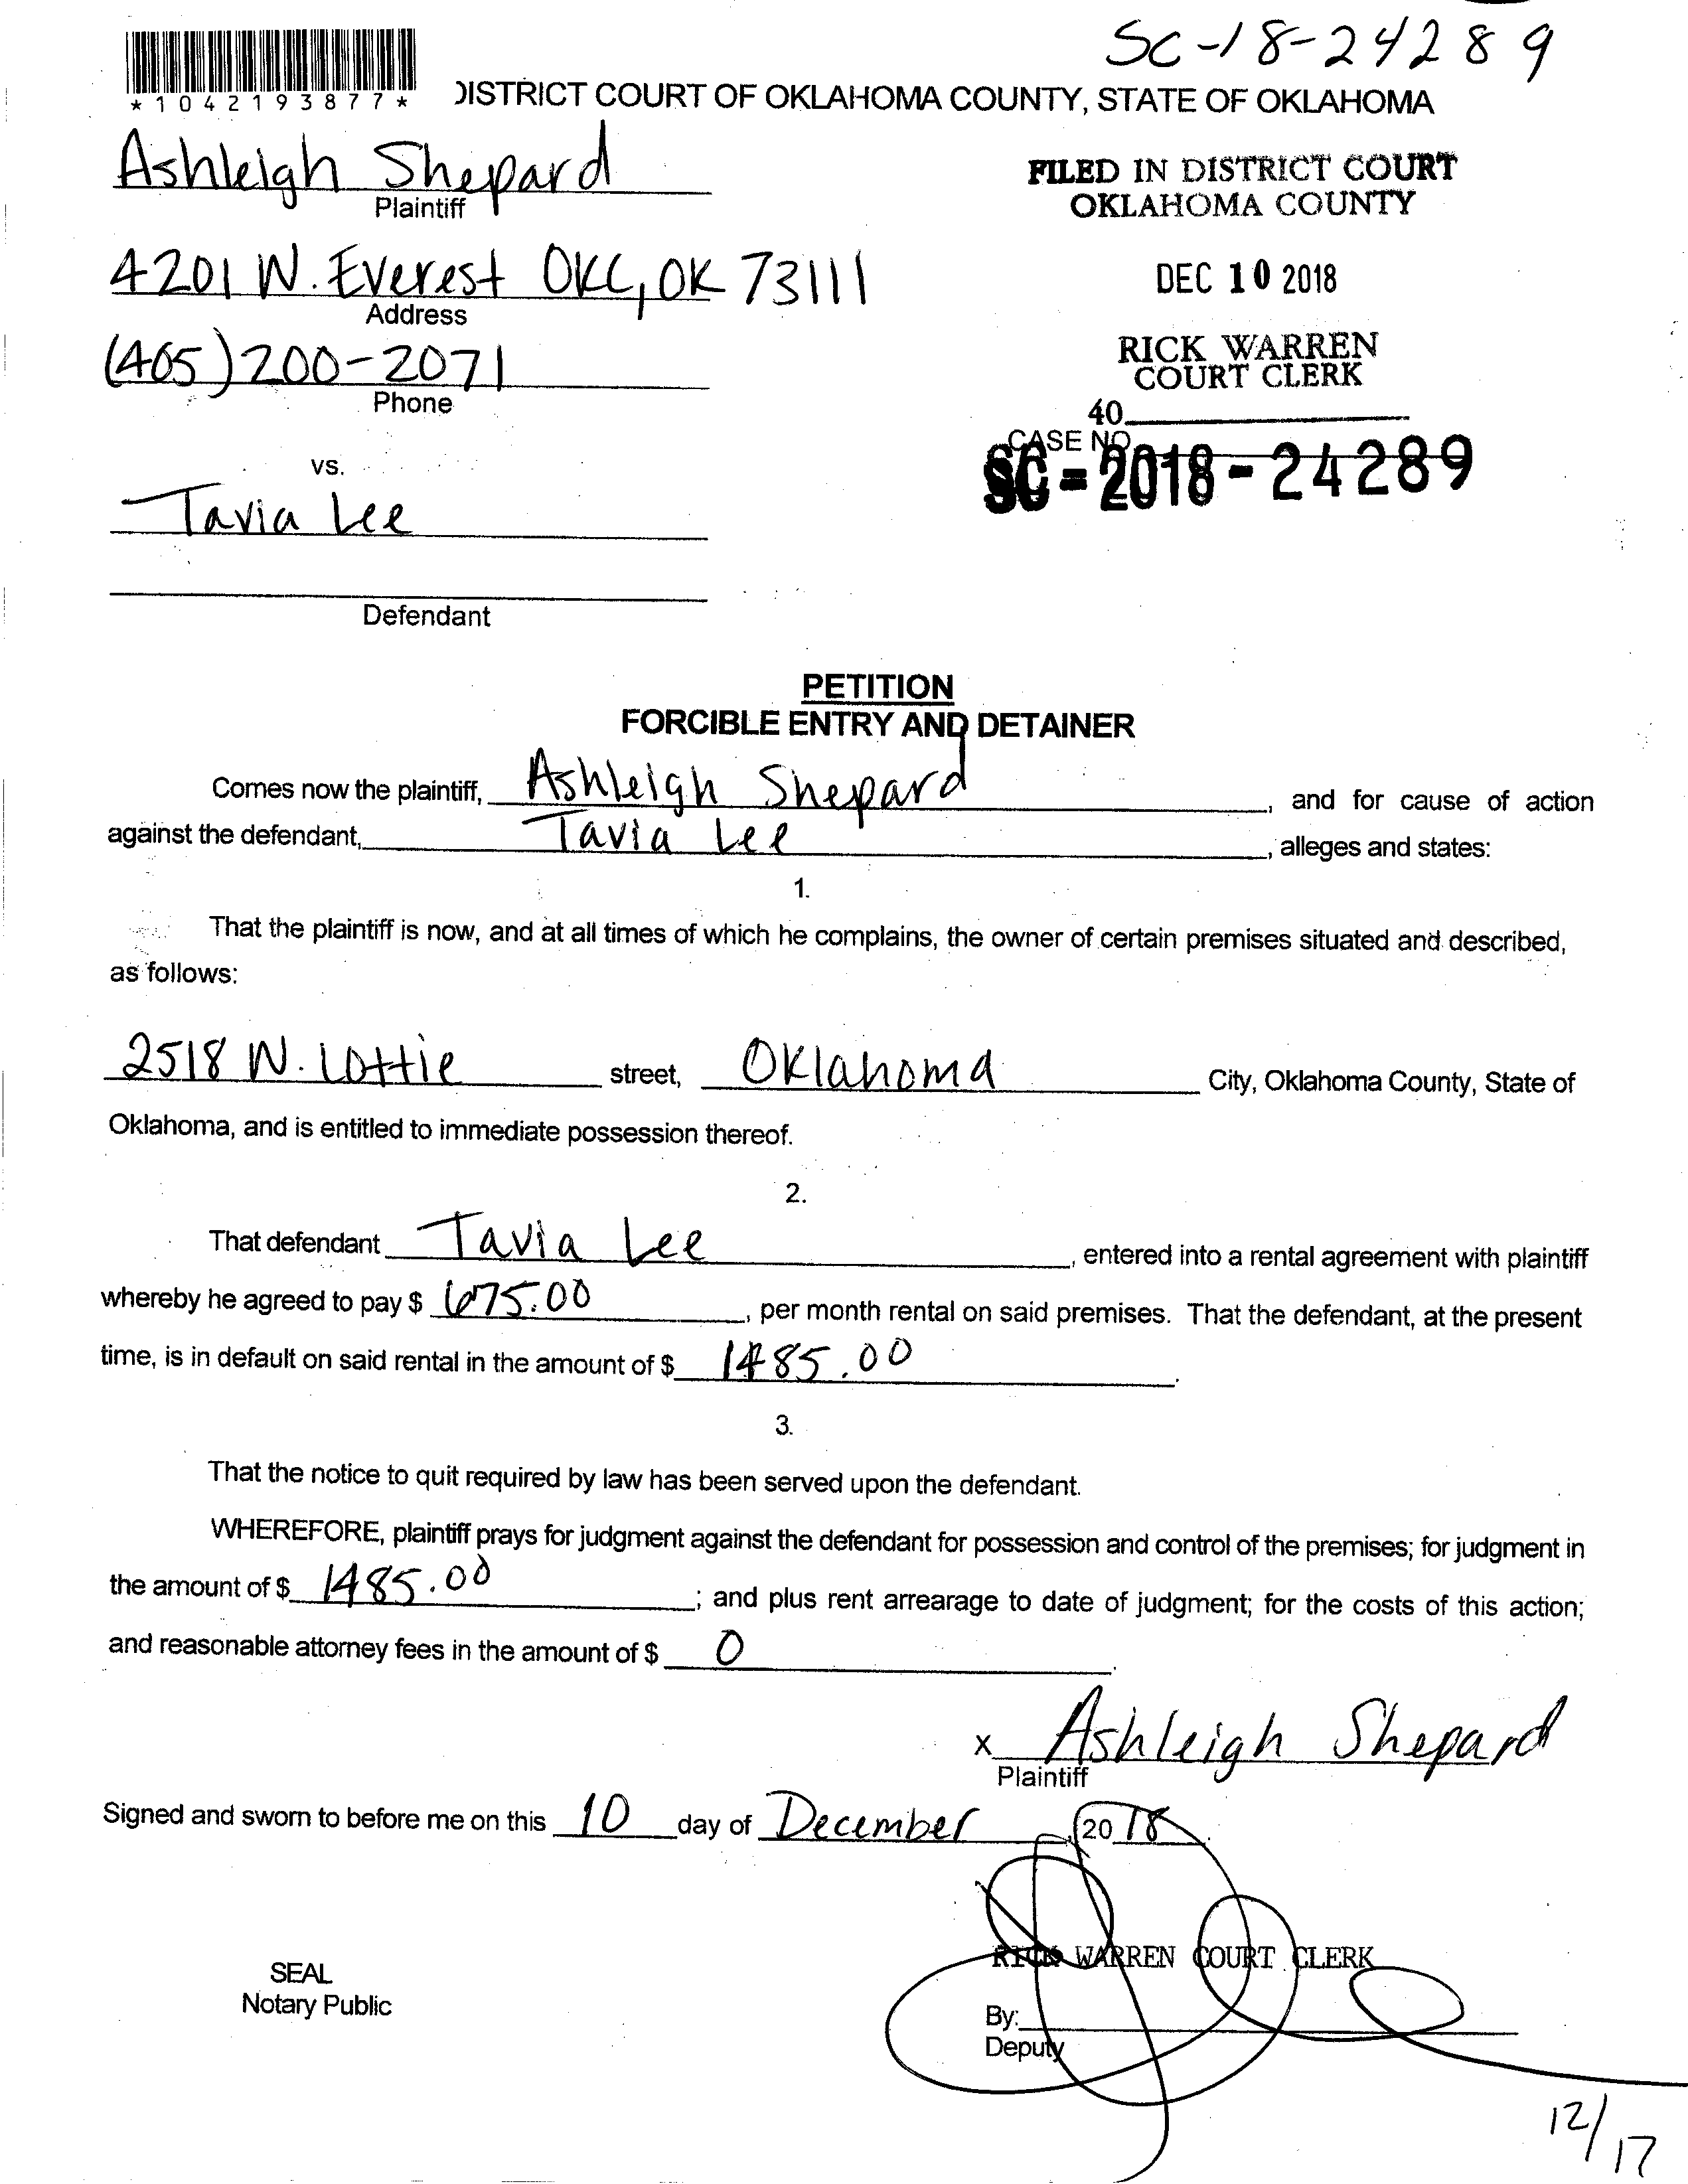 SC-18-24289
*1042193877*
DISTRICT COURT OF OKLAHOMA COUNTY, STATE OF OKLAHOMA
Ashleigh Shepard
Plaintiff
FILED IN DISTRICT COURT
OKLAHOMA COUNTY
4201 N. Everest OKC, OK 73111
Address
DEC 10 2018
(405)200-2071
Phone
RICK WARREN
COURT CLERK
40
CASE NO.
SC-2018-24289
vs.
Tavia Lee
Defendant
PETITION
FORCIBLE ENTRY AND DETAINER
Comes now the plaintiff, Ashleigh Shepard, and for cause of action
against the defendant, Tavia Lee, alleges and states:
1.
That the plaintiff is now, and at all times of which he complains, the owner of certain premises situated and described,
as follows:
2518 N. Lottie street, Oklahoma City, Oklahoma County, State of
Oklahoma, and is entitled to immediate possession thereof.
2.
That defendant Tavia Lee, entered into a rental agreement with plaintiff
whereby he agreed to pay $ 675.00, per month rental on said premises. That the defendant, at the present
time, is in default on said rental in the amount of $ 1485.00.
3.
That the notice to quit required by law has been served upon the defendant.
WHEREFORE, plaintiff prays for judgment against the defendant for possession and control of the premises; for judgment in
the amount of $ 1485.00; and plus rent arrearage to date of judgment; for the costs of this action;
and reasonable attorney fees in the amount of $ 0.
x Ashleigh Shepard
Plaintiff
Signed and sworn to before me on this 10 day of December, 2018.
RICK WARREN COURT CLERK
SEAL
Notary Public
By:
Deputy
12/17